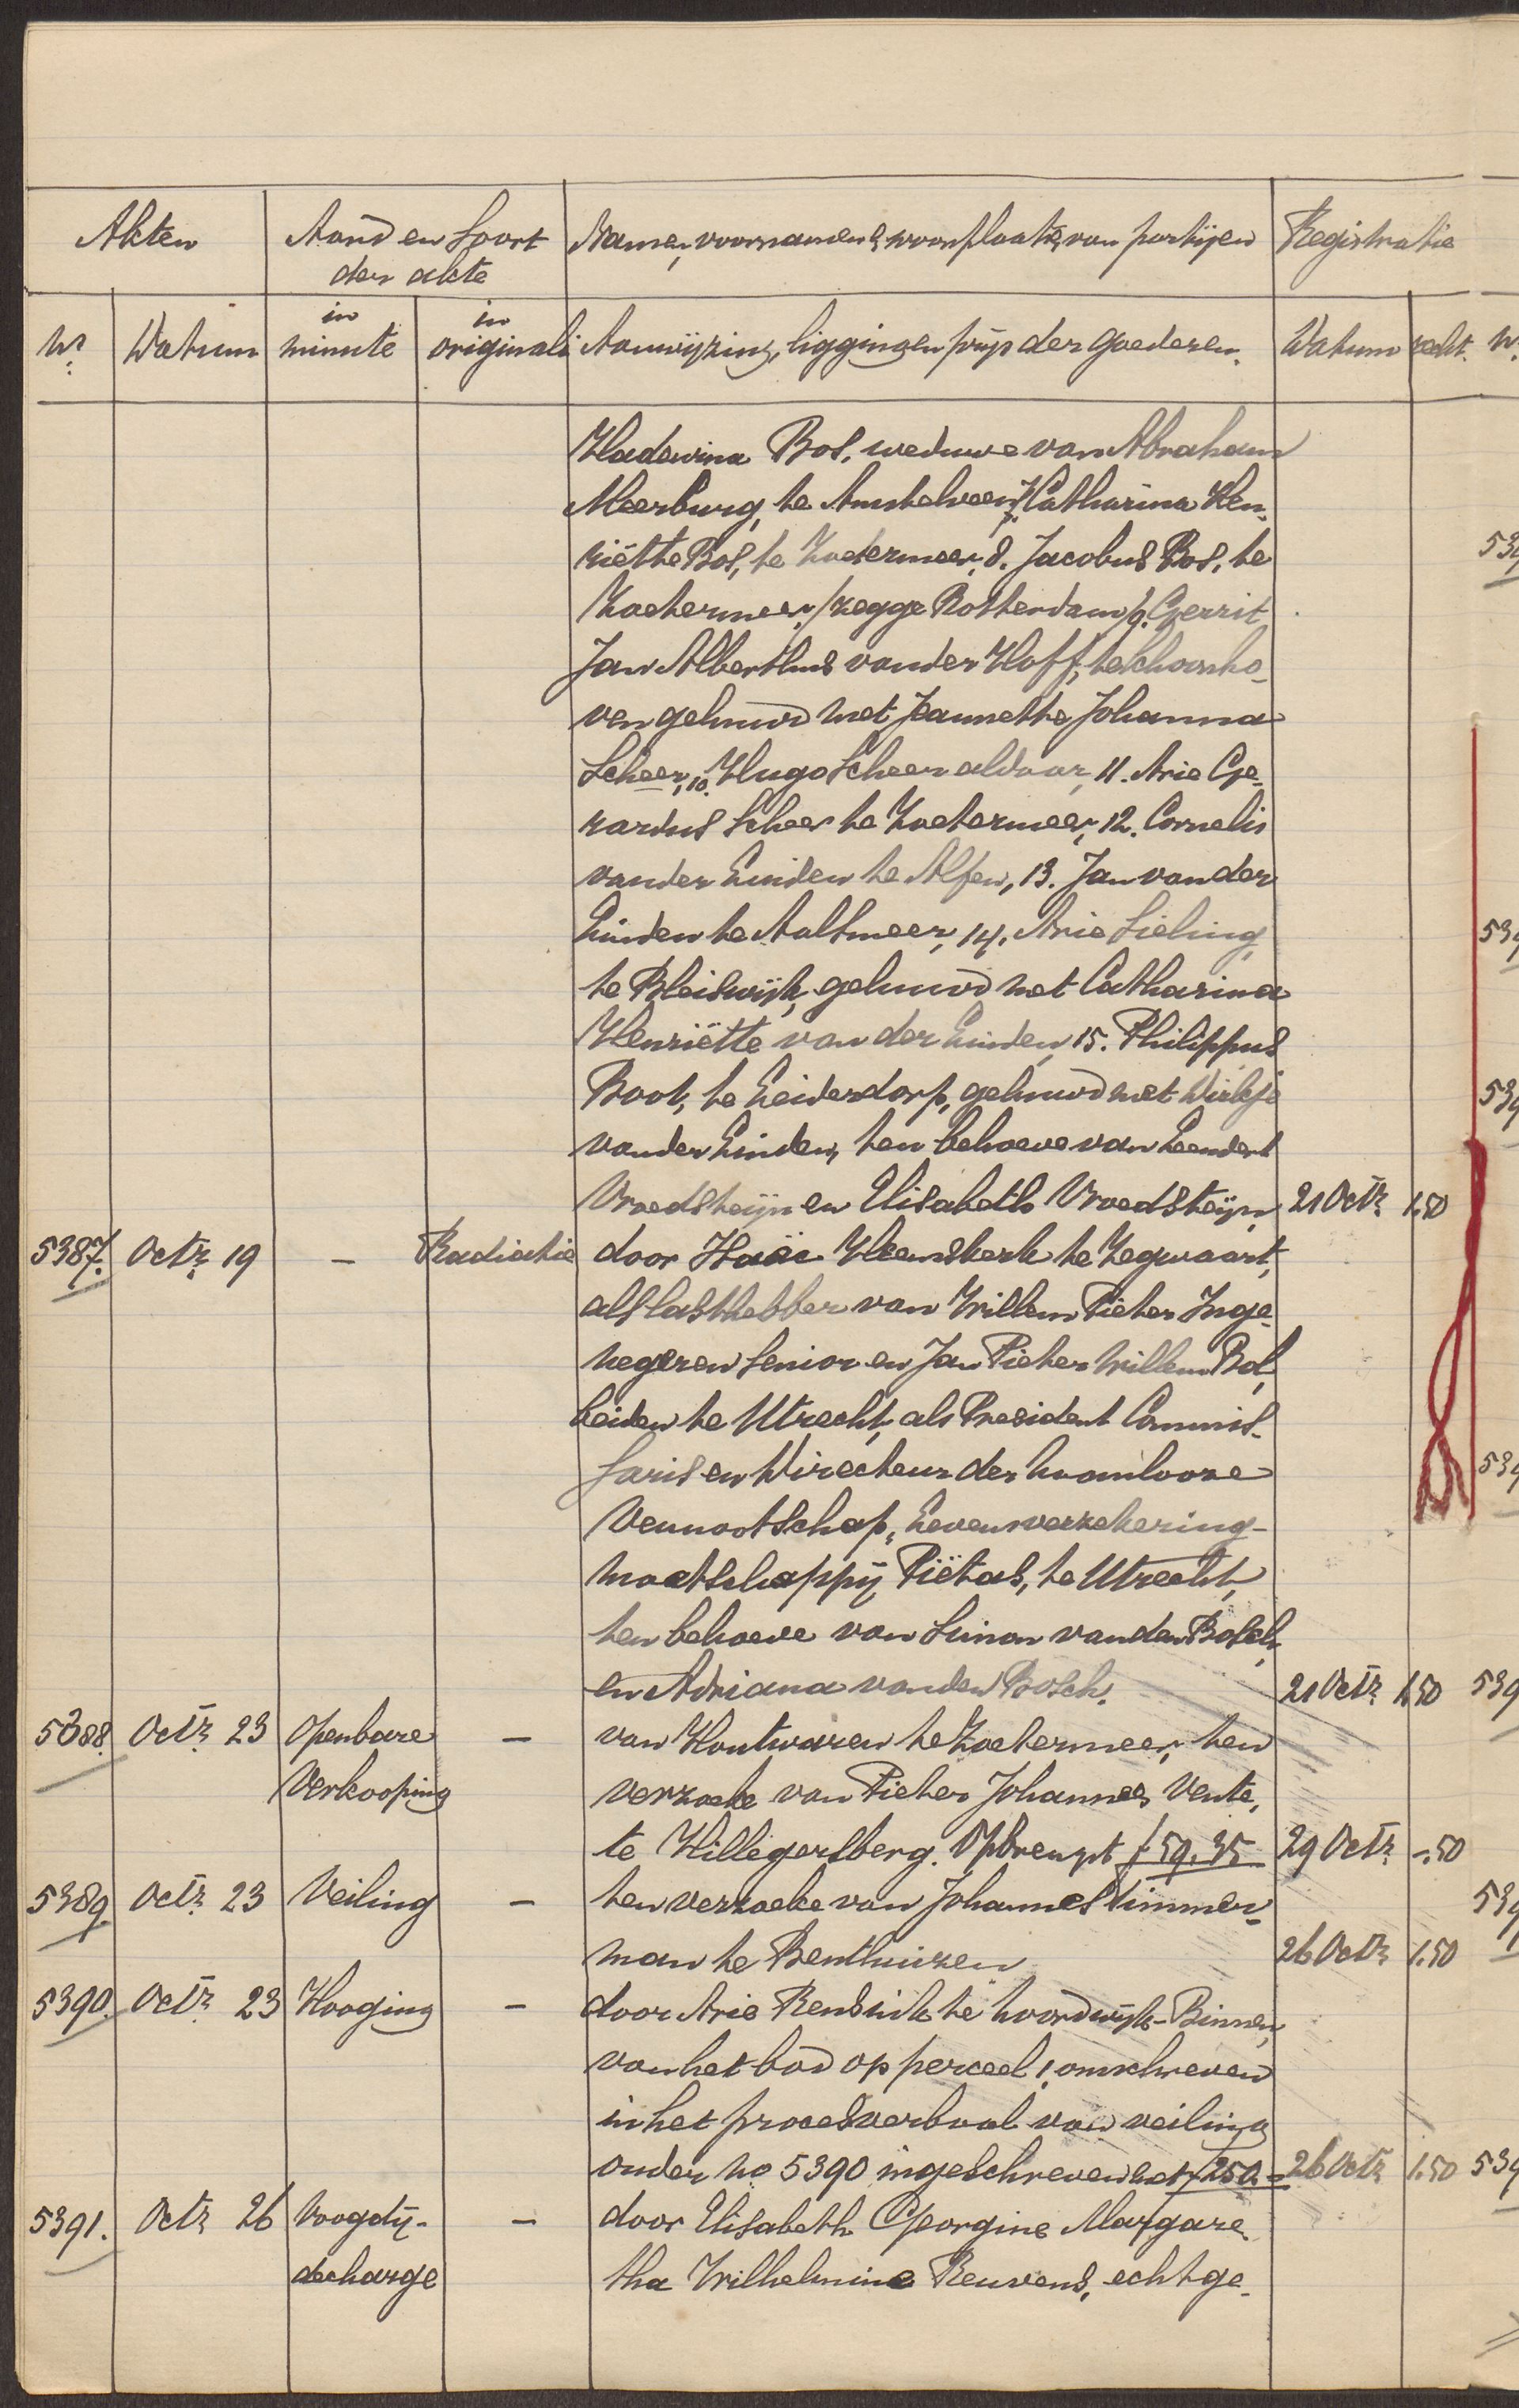 Akten Aard en Soort Namen, voornamen & woonplaats, van partijen Registratie
der akte
No. Datum in minute in originali Aanwijzing, ligging en prijs der goederen. Datum recht. No.
Hadewina Bos, weduwe van Abraham
Meerburg, te Amstelveen, 7. Catharina Hen-
riëtte Bos, te Zoetermeer, 8. Jacobus Bos, te
Zoetermeer, /zegge Rotterdam/ 9. Gerrit
Jan Alberthus van der Hoff, te Schoonho-
ven gehuwd met Jeannette Johanna
Scheer, 10. Hugo Scheer aldaar, 11. Arie Ge-
rardus Scheer te Zoetermeer, 12. Cornelis
van der Einden te Alfen, 13. Jan van der
Einden te Aalsmeer, 14. Arie Sieling
te Bleiswijk, gehuwd met Catharina
Henriëtte van der Einden, 15. Philippus
Boot, te Leiderdorp, gehuwd met Dirkje
van der Einden, ten behoeve van Leendert
Vroedsteijn en Elisabeth Vroedsteijn 21 Octr. 1.50
5387. Octr. 19 - Radiatie door Heemskerk te Zegwaart,
als lasthebber van Willem Pieter Inge-
negeren Senior en Jan Pieter Willem Bol,
beiden te Utrecht, als President Commis-
saris en Directeur der naamlooze
Vennootschap, Levensverzekering-
maatschappij Piëtas, te Utrecht,
ten behoeve van Simon van den Bosch,
en Adriana van den Bosch. 21 Octr. 1.50
5388. Octr. 23 Openbare - van Houtwaren te Zoetermeer, ten
Verkooping verzoeke van Pieter Johannes Vente,
te Hillegersberg. Opbrengst f 59.35 29 Octr. -.50
5389 Octr. 23 Veiling - ten verzoeke van Johannes Timmer-
man te Benthuizen 26 Octr. 1.50
5390. Octr. 23 Hooging - door Arie Rensink te Noordwijk-Binnen,
van het bod op perceel 1, omschreven
in het procesverbaal van veiling
onder no 5390 ingeschreven met f 250.= 26 Octr. 1.50
5391. Octr. 26 Voogdij- - door Elisabeth Georgine Margare-
decharge tha Wilhelmine Reuvens, echtge-